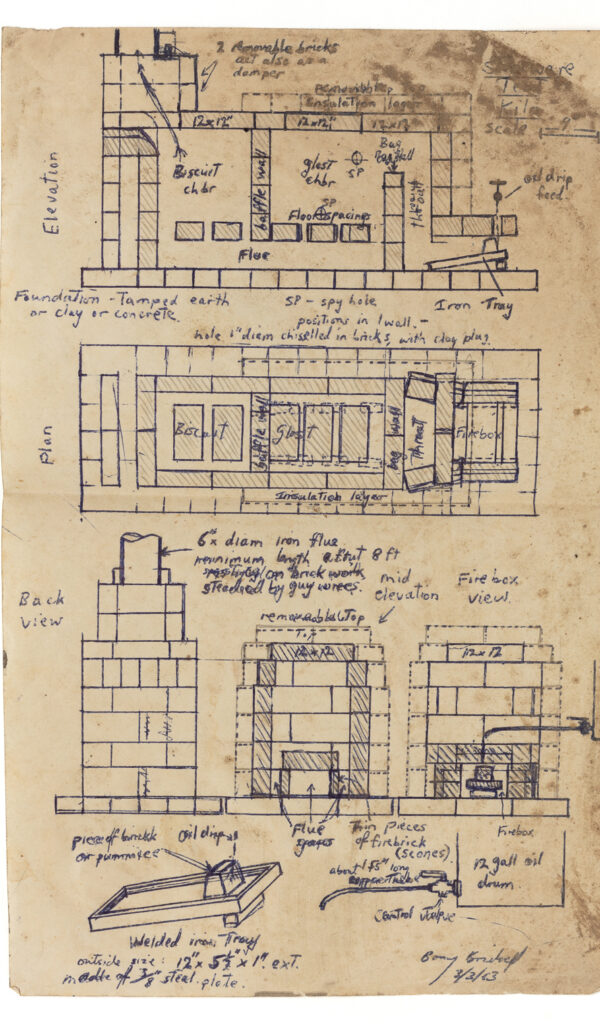 2 removable bricks
act also as a
damper
Stoneware
Test
Kiln
Scale 9"
removable top
insulation layer
12x12" 12x12" 12x12
Elevation
Biscuit
chbr
baffle wall
glost
chbr
SP
Bag
wall
throat
oil drip
feed
SP
Floor spacings
Flue
Foundation - Tamped earth
or clay or concrete.
SP - spy hole
positions in 1 wall. -
hole 1" diam chiselled in bricks, with clay plug
Iron Tray
Plan
Biscuit
baffle wall
Glost
bag wall
Throat
Firebox
Insulation layer
6" diam iron flue
minimum length about 8 ft
on brick work
steadied by guy wires.
Back
view
mid
elevation
Firebox
view.
removable top
12x12
12x12
Flue
spaces
Thin pieces
of firebrick
(scones)
Firebox
piece of brick
or pummice
Oil drip
about 15" long
copper tube
Control Valve
12 gall oil
drum
Welded iron Tray
outside size: 12" x 5½" x 1" ext.
made of 3/8" steel plate.
3/3/63